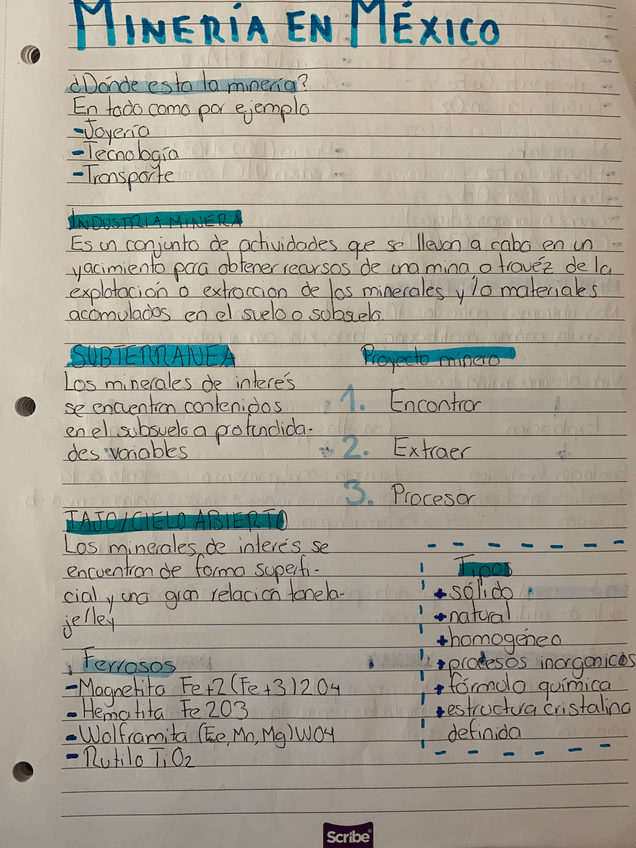 MINERÍA EN MÉXICO
¿Dónde esta la minería?
En todo como por ejemplo
-Joyería
-Tecnología
-Transporte
INDUSTRIA MINERA
Es un conjunto de actividades que se llevan a cabo en un
yacimiento para obtener recursos de una mina, o travéz de la
explotación o extraccion de los minerales y/o materiales
acomulados en el suelo o subsuelo.
SUBTERRANEA
Los minerales de interés
se encuentran contenidos
en el subsuelo a profundida-
des variables
Proyecto minero
1. Encontrar
2. Extraer
3. Procesar
TAJO/CIELO ABIERTO
Los minerales de interés se
encuentran de forma superfi-
cial y una gran relacion tonela-
je/ley
Tipos
+sólido
+natural
+homogéneo
+procesos inorganicos
+fórmula química
+estructura cristalina
definida
Ferrosos
-Magnetita Fe+2(Fe+3)2O4
-Hematita Fe2O3
-Wolframita (Fe,Mn,Mg)WO4
-Rutilo TiO2
Scribe